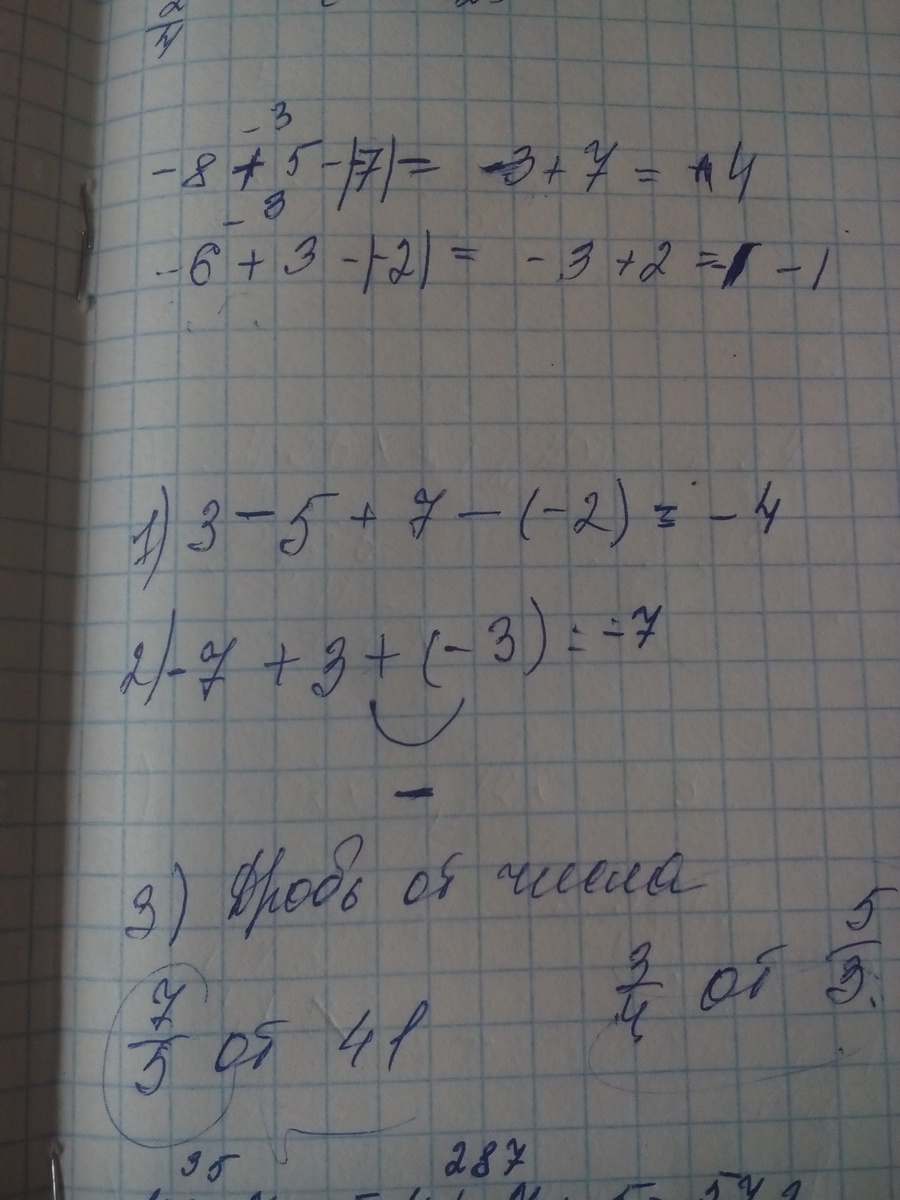 -3
-8 + 5 - |-7| = -3 + 7 = +4
-3
-6 + 3 - |-2| = -3 + 2 = -1
1) 3 - 5 + 7 - (-2) = -4
2) -7 + 3 + (-3) = -7
-
3) Дробь от числа
7/5 от 41
3/4 от 5/3
35 287